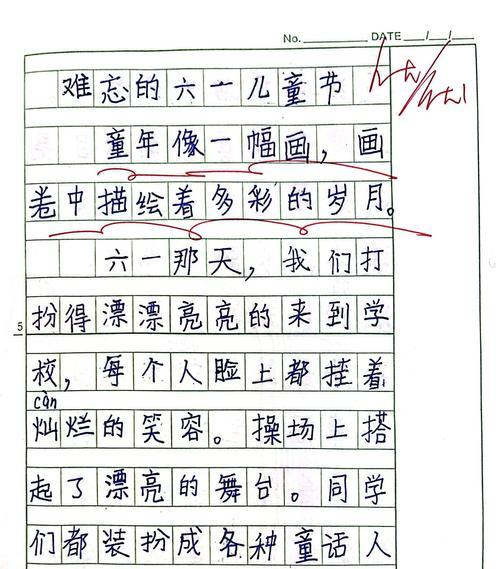 No. DATE / /
难忘的六一儿童节
童年像一幅画，画
卷中描绘着多彩的岁月。
六一那天，我们打
扮得漂漂亮亮的来到学
5
校，每个人脸上都挂着
càn
灿烂的笑容。操场上搭
起了漂亮的舞台。同学
们都装扮成各种童话人